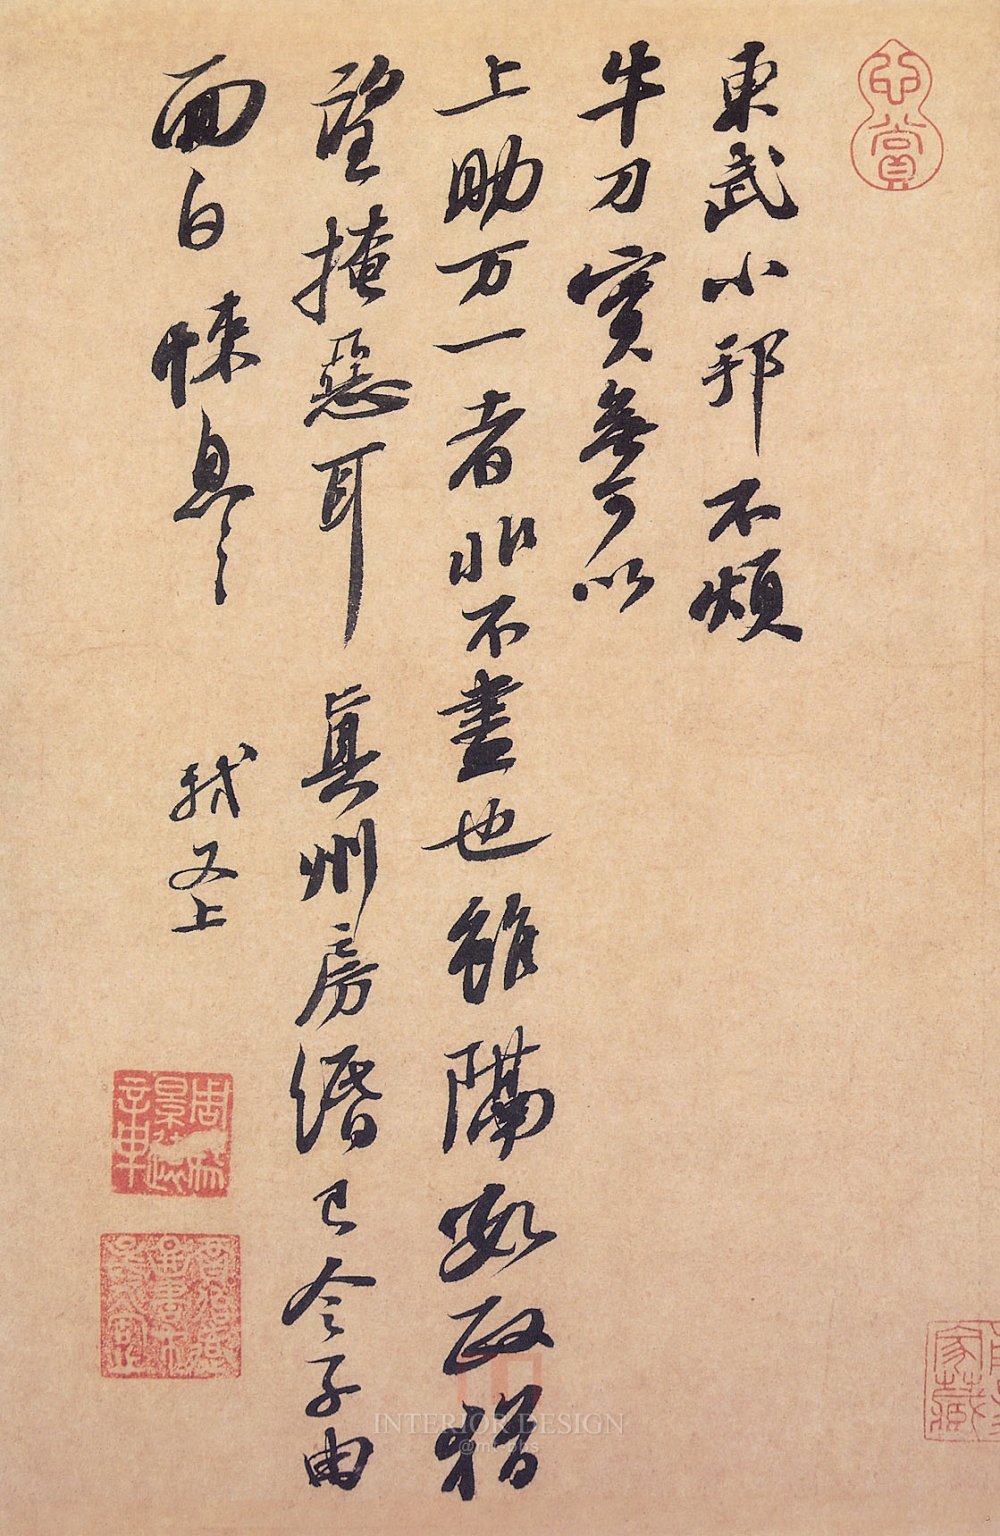 心賞
東武小邦不煩
牛刀實無可以
上助万一者非不盡也雖隔數政猶
望掩惡耳 真州房緡已令子由
面白悚息〻〻 軾又上
家藏
INTERIOR DESIGN